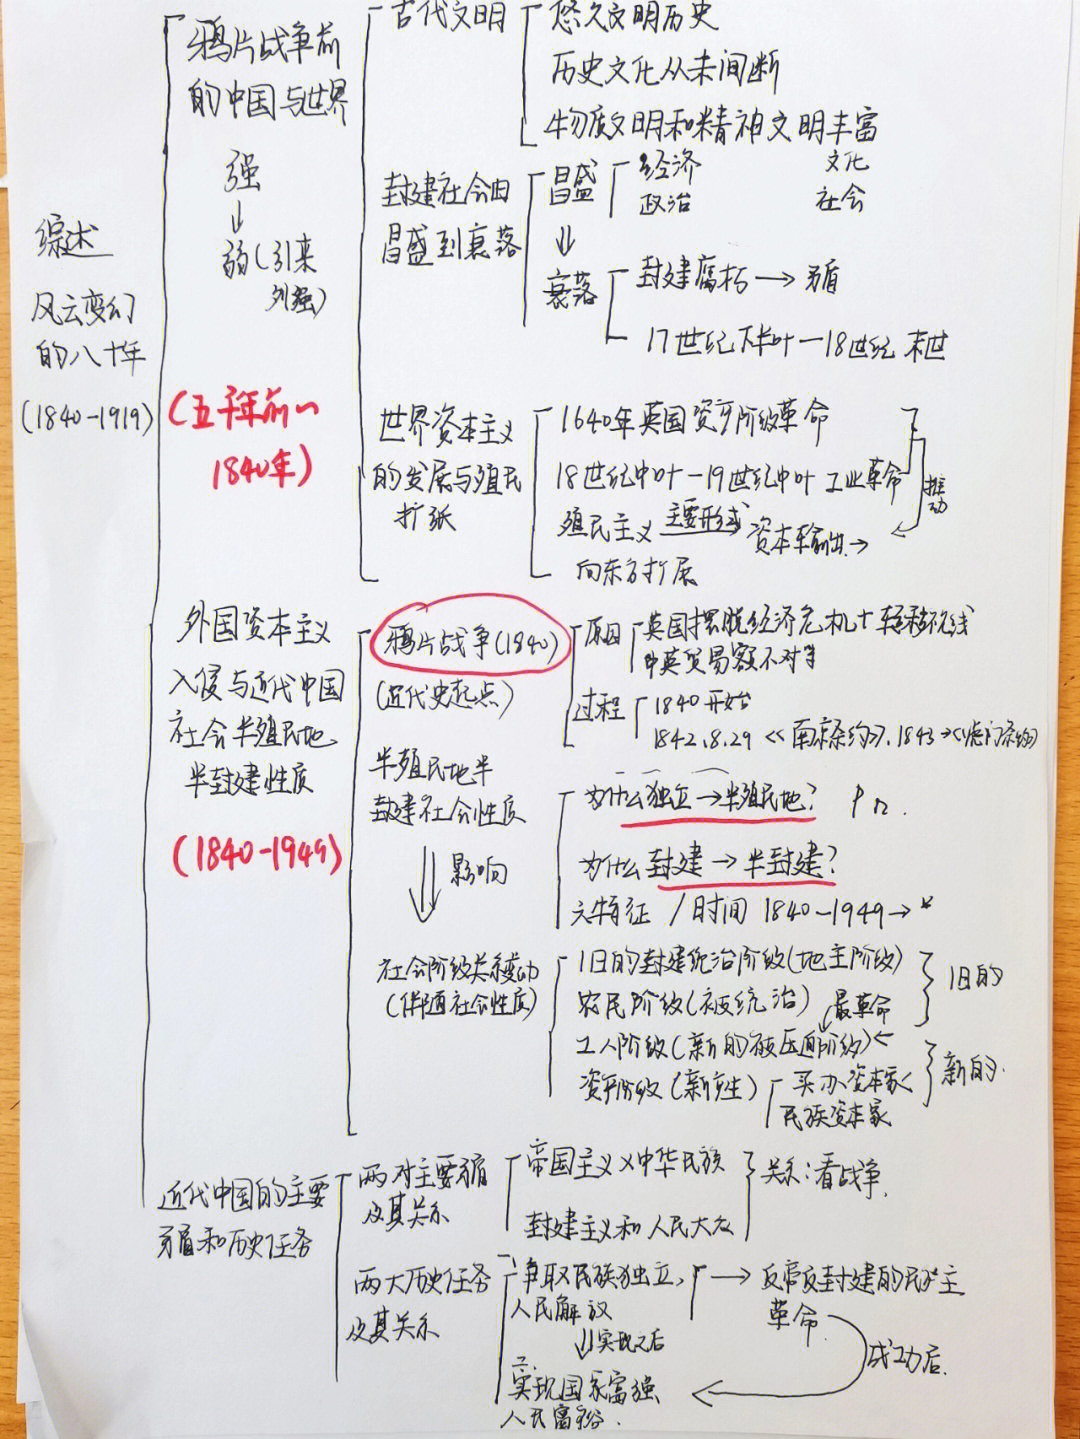 综述
风云变幻
的八十年
(1840-1919)
鸦片战争前
的中国与世界
强
弱(引来
列强)
(五千年前—
1840年)
古代文明
悠久文明历史
历史文化从未间断
物质文明和精神文明丰富
封建社会由
昌盛到衰落
昌盛
经济 文化
政治 社会
衰落
封建腐朽→矛盾
17世纪下半叶—18世纪末世
世界资本主义
的发展与殖民
扩张
1640年英国资产阶级革命
18世纪中叶—19世纪中叶 工业革命
推动
殖民主义 主要形式 资本输出→
向东方扩展
外国资本主义
入侵与近代中国
社会半殖民地
半封建性质
(1840-1949)
鸦片战争(1840)
(近代史起点)
原因
英国摆脱经济危机+转移视线
中英贸易额不对等
过程
1840开始
1842.8.29《南京条约》.1843→《虎门条约》
半殖民地半
封建社会性质
为什么独立→半殖民地?
为什么封建→半封建?
六特征 /时间 1840-1949→*
影响
社会阶级关系变动
(伴随社会性质)
旧的封建统治阶级(地主阶级)
农民阶级(被统治)
旧的
最革命
工人阶级(新的被压迫阶级)
资产阶级(新产生)
买办资本家
民族资本家
新的.
近代中国的主要
矛盾和历史任务
两对主要矛盾
及其关系
帝国主义×中华民族
封建主义和人民大众
关系:看战争.
两大历史任务
及其关系
争取民族独立,
人民解放
→反帝反封建的民主
革命
实现之后
成功后.
实现国家富强
人民富裕.